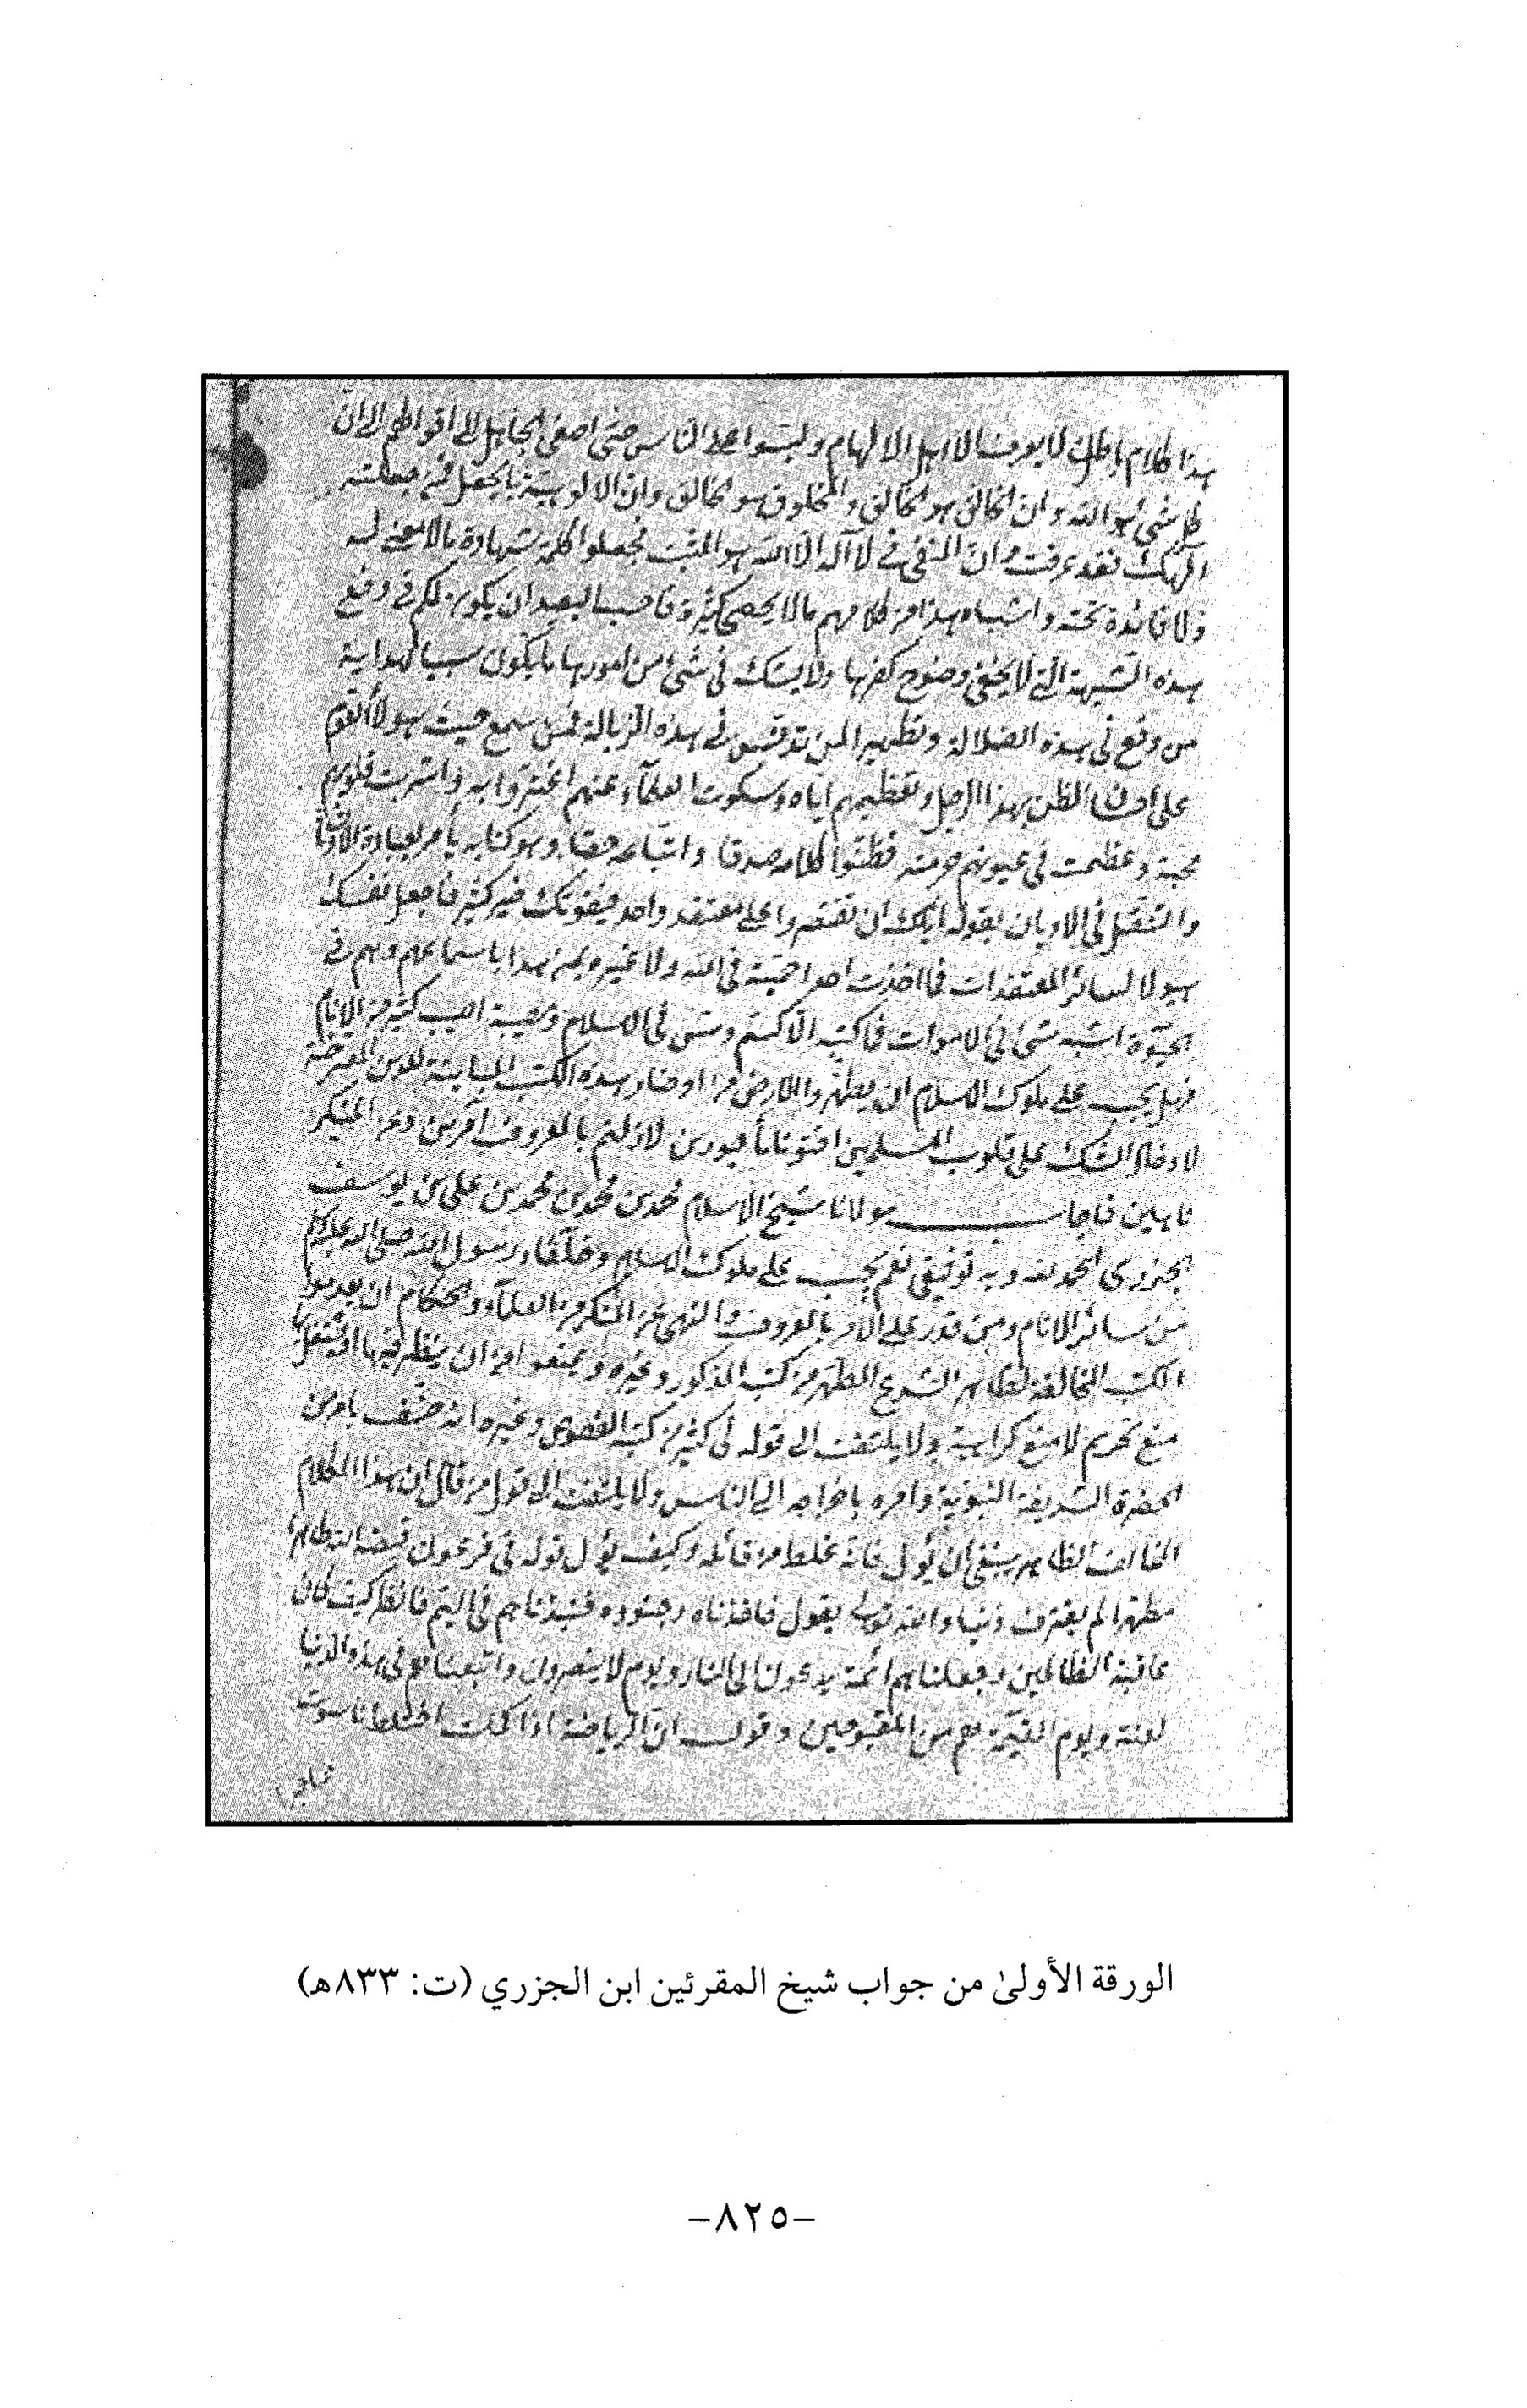 هذا كلام باطن لا يعرفه الا اهل الالهام ولبسوا على الناس حتى اصغى الجاهل الى اقوالهم الى ان
كل شئ هو الله وان الخالق هو الخالق والمخلوق هو الخالق وان الالوهية بالجعل فمن جعلته
الهك فقد عرفت وان المنفى فى لا آله الا الله هو المثبت فجعلوا كلمة شهادة مالا معنى له
ولا فائدة تحته واشباه هذا من كلامهم مالا يحصى كثرة فاحب العبيد ان يكون لكم فى دفع
هذه الشبهة التى لا يخفى وضوح كفرها ولا يشك فى شئ من امورها ما يكون سببا لهداية
من وقع فى هذه الضلالة وتطهيرا لمن تدنس فى هذه الزبالة فمن سمع حيث هولاء القوم
على الظن بهذا الرجل وتعظيمهم اياه وسكوت العلمآء عنهم اغتروا به واشربت قلوبهم
محبة وعظمت فى عيونهم حرمته فظنوا كلامه صدقا واتباعه حقا وهو كتابه يأمر بعبادة الاوثان
والتنقل فى الاديان بقوله اياك ان تقتصر على معتقد واحد فيفوتك خير كثير فاجعل نفسك
هيولا لسائر المعتقدات فما اخذت احدا حمية فى الله ولا غيرة
الحيوة اشبه شئ فى الاموات فى الاسلام ومصيبة اصيب كثير من الانام
فهل يجب على ملوك الاسلام ان يطهروا الارض من اوضار هذه الكتب المباينة للدين
الشك على قلوب المسلمين افتونا مأجورين لا زلتم بالمعروف آمرين وعن المنكر
ناهين فاجاب مولانا شيخ الاسلام محمد بن محمد بن محمد بن على بن يوسف
الجزرى الحمد لله وبه توفيقى نعم يجب على ملوك الاسلام وخلفاء رسول الله صلى الله عليه وسلم
من سائر الانام ومن قدر على الامر بالمعروف والنهى عن المنكر من العلمآء والحكام ان يعدموا
الكتب المخالفة لظاهر الشرع المطهر من كتب المذكور وغيره ويمنعوا من ان ينظر فيها او يشتغل بها
منع تحريم لا منع كراهية ولا يلتفت الى قوله فى كثير من كتبه الفصوص وغيره انه صنف بامر من
الحضرة الشريفة النبوية وامره باخراجه الى الناس ولا يلتفت الى قول من قال ان هذا الكلام
المخالف الظاهر ينبغى ان يؤل فانه غلط من قائله وكيف يؤل قوله فى فرعون قبضه الله طاهرا
مطهرا لم يقترف ذنبا والله تعالى يقول فاخذناه وجنوده فنبذناهم فى اليم فانظر كيف كان
عاقبة الظالمين وجعلناهم ائمة يدعون الى النار ويوم لا ينصرون واتبعناهم فى هذه الدنيا
لعنة ويوم القيمة هم من المقبوحين وقوله ان الرياضة اذا كملت اختلط ناسوت
الورقة الأولىٰ من جواب شيخ المقرئين ابن الجزري (ت: ٨٣٣هـ)
-٨٢٥-